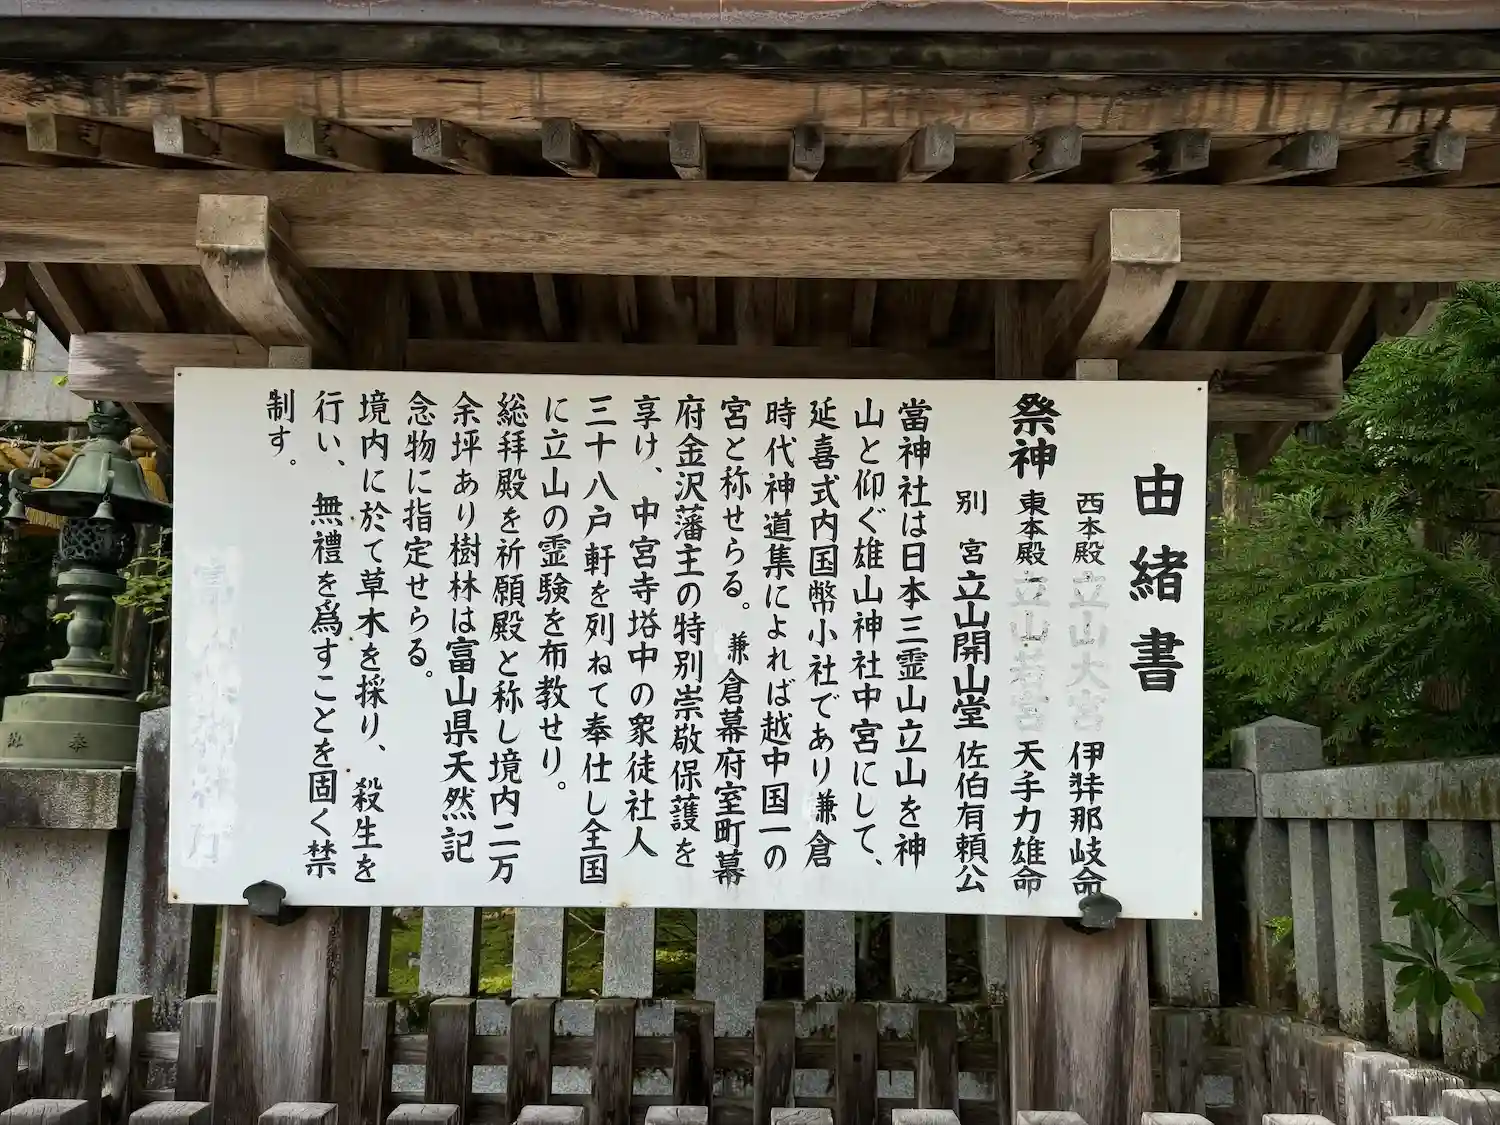 由緒書
祭神
西本殿 立山大宮 伊弉那岐命
東本殿 立山若宮 天手力雄命
別宮 立山開山堂 佐伯有頼公
當神社は日本三霊山立山を神
山と仰ぐ雄山神社中宮にして、
延喜式内国幣小社であり兼倉
時代神道集によれば越中国一の
宮と称せらる。兼倉幕府室町幕
府金沢藩主の特別崇敬保護を
享け、中宮寺塔中の衆徒社人
三十八戸軒を列ねて奉仕し全国
に立山の霊験を布教せり。
総拝殿を祈願殿と称し境内二万
余坪あり樹林は富山県天然記
念物に指定せらる。
境内に於て草木を採り、殺生を
行い、無禮を為すことを固く禁
制す。
奉